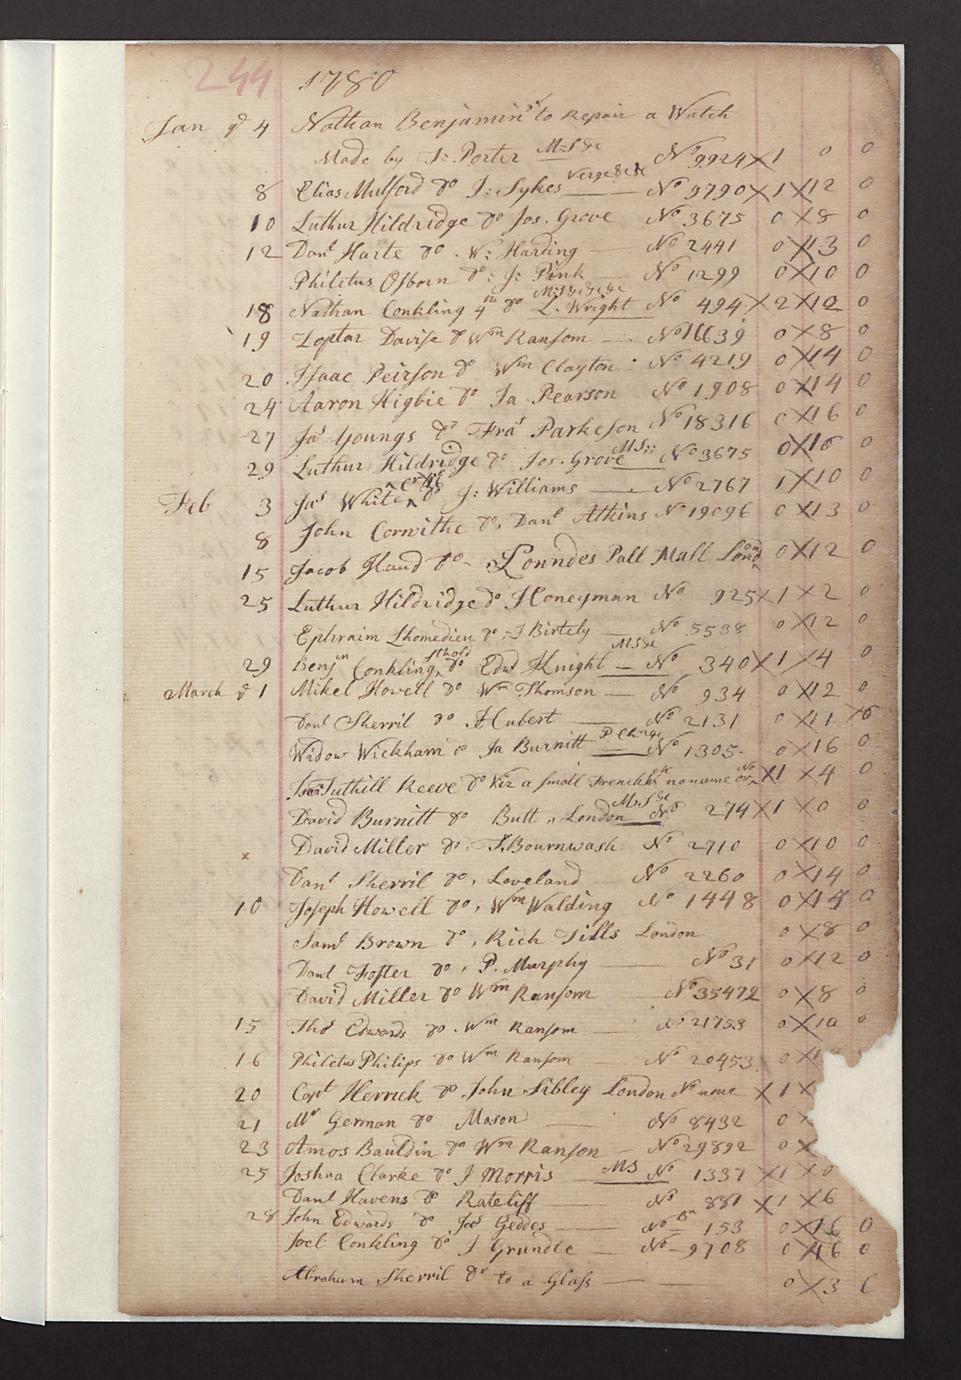 244 1780
Jan y 4 Nathan Benjamin's to Repair a Watch
Made by J: Porter M:S&c No 9924 X 1 0 0
8 Elias Mulford do J: Sykes Verge &c &c No 9790 X 1 X 12 0
10 Luthur Hildridge do Jos. Grove No 3675 0 X 8 0
12 Danl Harte do. Wm: Harding No 2441 0 X 13 0
Philetus Osborn do: J: Pink No 1299 0 X 10 0
18 Nathan Conkling 4th do L. Wright M:S&c&c&c No 494 X 2 X 12 0
19 Davise do Wm Ransom No 16639 0 X 8 0
20 Isaac Peirson do Wm Clayton No 4219 0 X 14 0
24 Aaron Higbie do Ja Pearson No 1908 0 X 14 0
27 Jas Youngs do Fras Parkeson No 18316 0 X 16 0
29 Luthur Hildridge do Jos. Grove M:S:: No 3675 0 X 16 0
Feb 3 Jas White do J: Williams No 2767 1 X 10 0
8 John Corwithe do, Danl Atkins No 19096 0 X 13 0
15 Jacob Hand do Lonndes Pall Mall Lond 0 X 12 0
25 Luthur Hildridge do Honeyman No 925 X 1 X 2 0
Ephraim Lhomedieu do, J Birtely No 5538 0 X 12 0
29 Benjn Conkling Sthold do Edwd Knight M:S&c No 340 X 1 X 4 0
March y 1 Mikel Howell do Wm Thomson No 934 0 X 12 0
Danl Sherril do Hubert No 2131 0 X 11 X 6
Widow Wickham do Ja Burnitt No 1305 0 X 16 0
Tuthill Reeve do Viz a small French noname X 1 X 4 0
David Burnitt do Butt, London M:S&c No 274 X 1 X 0 0
David Miller do, J. Bournwash No 2710 0 X 10 0
Danl Sherril do, Loveland No 2260 0 X 14 0
10 Joseph Howell do, Wm Walding No 1448 0 X 14 0
Saml Brown do, Rich Tills London 0 X 8 0
Danl Foster do, P. Murphy No 31 0 X 12 0
David Miller do Wm Ransom No 35472 0 X 8 0
15 Thos Edwards do. Wm Ransom No 21753 0 X 10 0
16 Philetus Philips do Wm Ransom No 20453 0 X
20 Capt Herrick do John Sibley London No name X 1 X
21 Mr German do Mason No 8432 0 X
23 Amos Bauldin do Wm Ranson No 29892 0 X
25 Joshua Clarke do J Morris MS No 1337 X 1 X 0
Danl Havens do Rateliff No 881 X 1 X 6
28 John Edwards do Jas Geddes No 153 0 X 16 0
Joel Conkling do J Grundle No 9708 0 X 16 0
Abraham Sherril Dr to a Glass 0 X 3 6